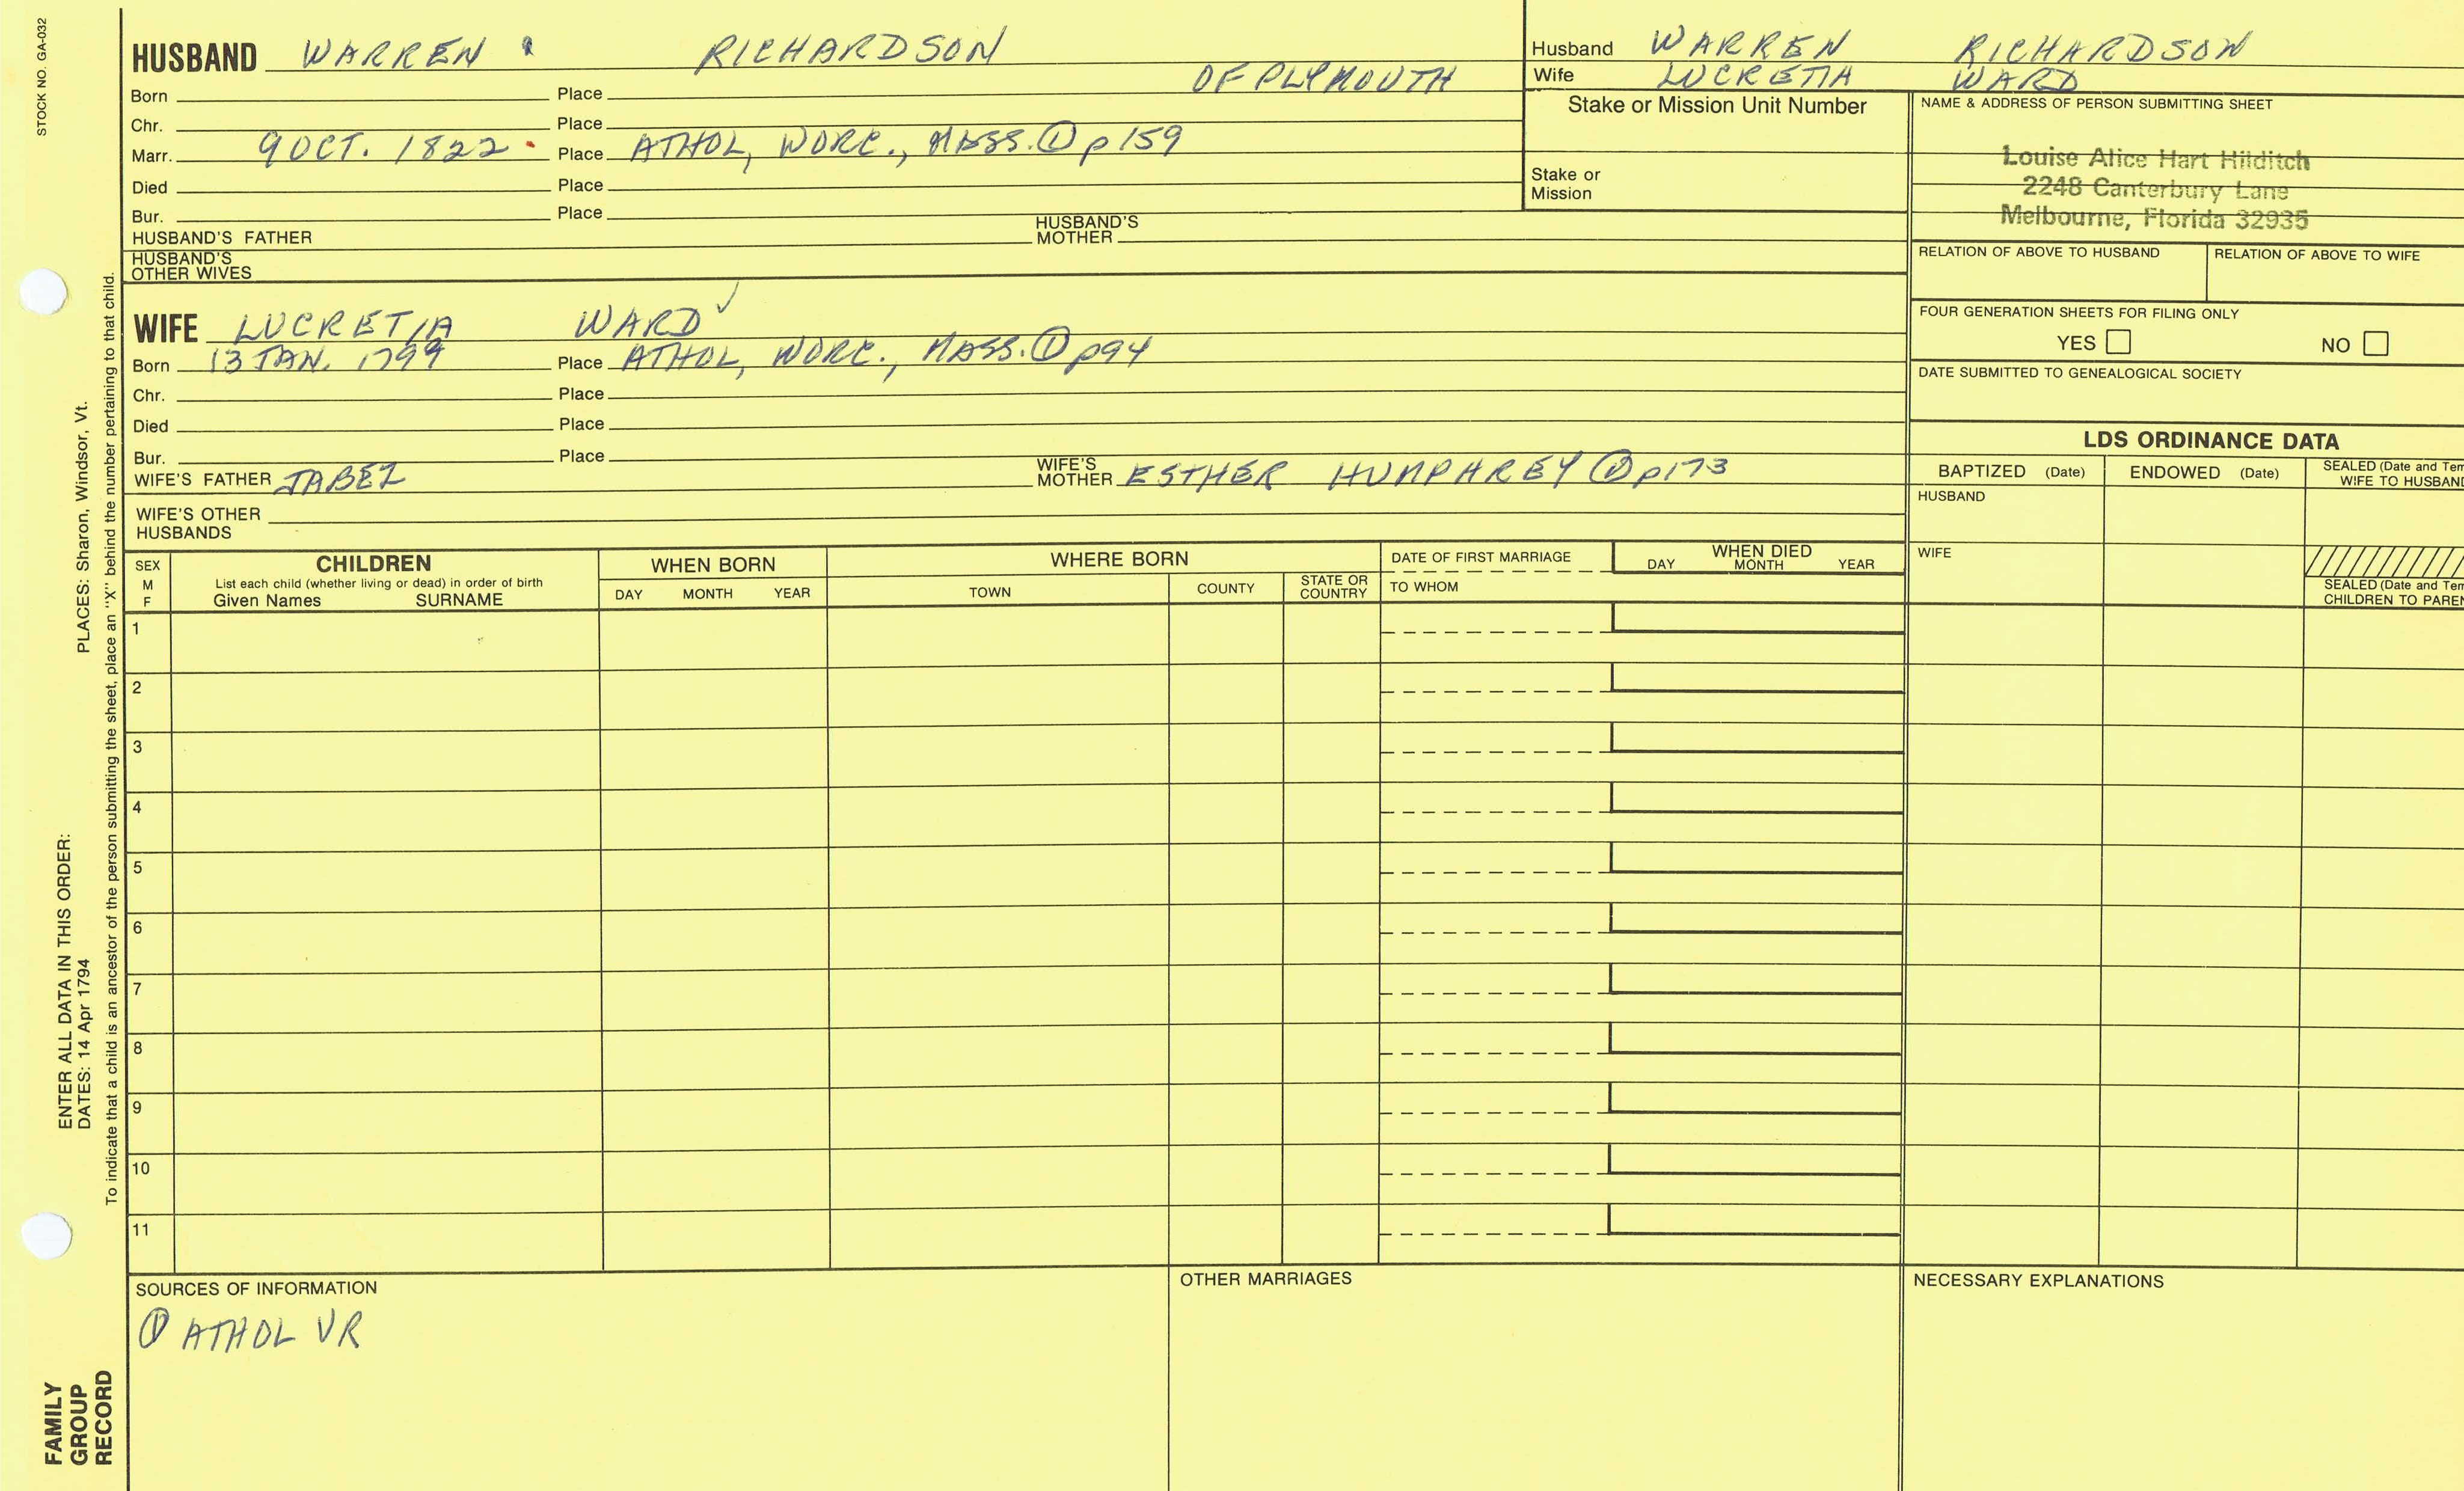 STOCK NO. GA-032
HUSBAND WARREN RICHARDSON
OF PLYMOUTH
Born Place
Chr. Place
Marr. 9 OCT. 1822 Place ATHOL, WORC., MASS. ① p 159
Died Place
Bur. Place
HUSBAND'S FATHER HUSBAND'S MOTHER
HUSBAND'S OTHER WIVES
Husband WARREN RICHARDSON
Wife LUCRETIA WARD
Stake or Mission Unit Number
Stake or Mission
NAME & ADDRESS OF PERSON SUBMITTING SHEET
Louise Alice Hart Hilditch
2248 Canterbury Lane
Melbourne, Florida 32935
RELATION OF ABOVE TO HUSBAND RELATION OF ABOVE TO WIFE
FOUR GENERATION SHEETS FOR FILING ONLY
YES NO
DATE SUBMITTED TO GENEALOGICAL SOCIETY
WIFE LUCRETIA WARD ✓
Born 13 JAN. 1799 Place ATHOL, WORC., MASS. ① p94
Chr. Place
Died Place
Bur. Place
WIFE'S FATHER JABEZ WIFE'S MOTHER ESTHER HUMPHREY ① p173
WIFE'S OTHER HUSBANDS
LDS ORDINANCE DATA
BAPTIZED (Date) ENDOWED (Date) SEALED (Date and Tem
WIFE TO HUSBAND
HUSBAND
WIFE
SEALED (Date and Tem
CHILDREN TO PAREN
SEX
M
F
CHILDREN
List each child (whether living or dead) in order of birth
Given Names SURNAME
WHEN BORN
DAY MONTH YEAR
WHERE BORN
TOWN COUNTY STATE OR COUNTRY
DATE OF FIRST MARRIAGE
TO WHOM
WHEN DIED
DAY MONTH YEAR
1
2
3
4
5
6
7
8
9
10
11
SOURCES OF INFORMATION
① ATHOL VR
OTHER MARRIAGES
NECESSARY EXPLANATIONS
ENTER ALL DATA IN THIS ORDER:
DATES: 14 Apr 1794 PLACES: Sharon, Windsor, Vt.
To indicate that a child is an ancestor of the person submitting the sheet, place an "X" behind the number pertaining to that child.
FAMILY
GROUP
RECORD